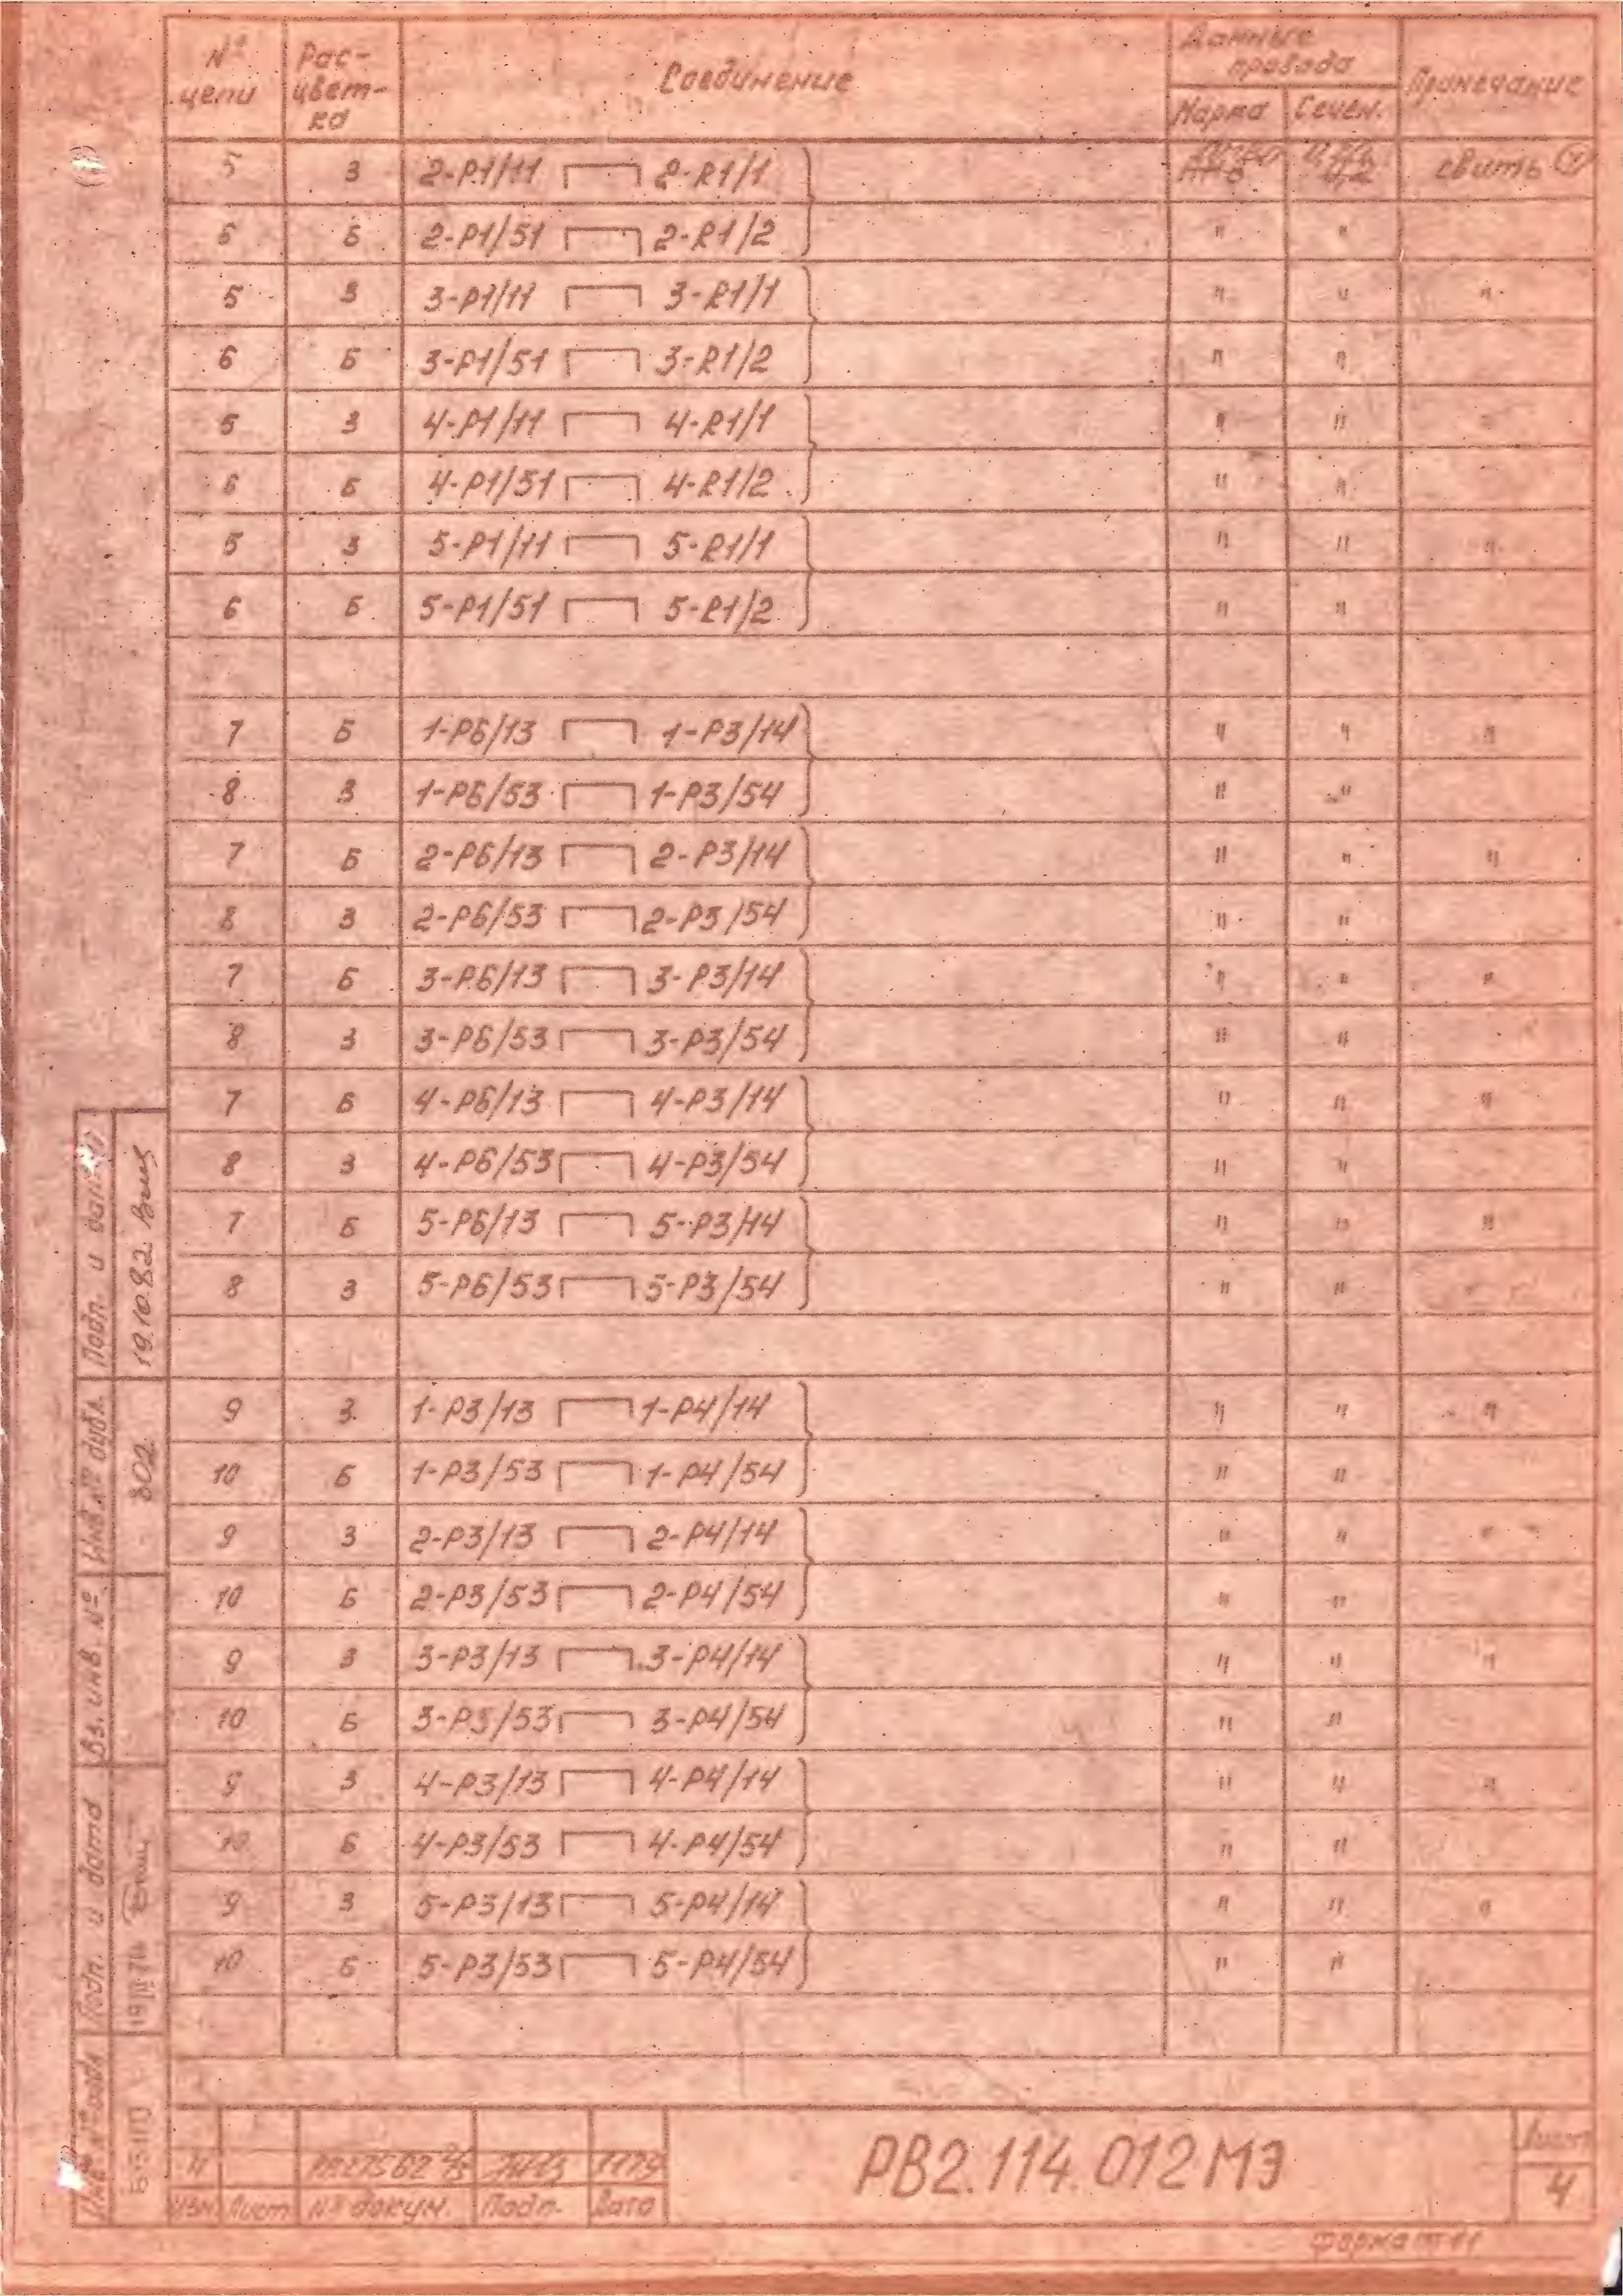 № цепи Рас-цвет-ка Соединение Данные провода Примечание
Марка Сечен.
5 З 2-Р1/11 2-R1/1 свить
6 Б 2-Р1/51 2-R1/2 " "
5 З 3-Р1/11 3-R1/1 " " "
6 Б 3-Р1/51 3-R1/2 " "
5 З 4-Р1/11 4-R1/1 " " "
6 Б 4-Р1/51 4-R1/2 " "
5 З 5-Р1/11 5-R1/1 " " "
6 Б 5-Р1/51 5-R1/2 " "
7 Б 1-Р6/13 1-Р3/14 " " "
8 З 1-Р6/53 1-Р3/54 " "
7 Б 2-Р6/13 2-Р3/14 " " "
8 З 2-Р6/53 2-Р3/54 " "
7 Б 3-Р6/13 3-Р3/14 " " "
8 З 3-Р6/53 3-Р3/54 " "
7 Б 4-Р6/13 4-Р3/14 " " "
8 З 4-Р6/53 4-Р3/54 " "
7 Б 5-Р6/13 5-Р3/14 " " "
8 З 5-Р6/53 5-Р3/54 " "
9 З 1-Р3/13 1-Р4/14 " " "
10 Б 1-Р3/53 1-Р4/54 " "
9 З 2-Р3/13 2-Р4/14 " " "
10 Б 2-Р3/53 2-Р4/54 " "
9 З 3-Р3/13 3-Р4/14 " " "
10 Б 3-Р3/53 3-Р4/54 " "
9 З 4-Р3/13 4-Р4/14 " " "
10 Б 4-Р3/53 4-Р4/54 " "
9 З 5-Р3/13 5-Р4/14 " " "
10 Б 5-Р3/53 5-Р4/54 " "
Подп. и дата
19.10.82
Инв. № дубл.
802
Вз. инв. №
Подп. и дата
Инв. № подл.
Изм Лист № докум. Подп. Дата
РВ2.114.012МЭ
Лист
4
Формат 11